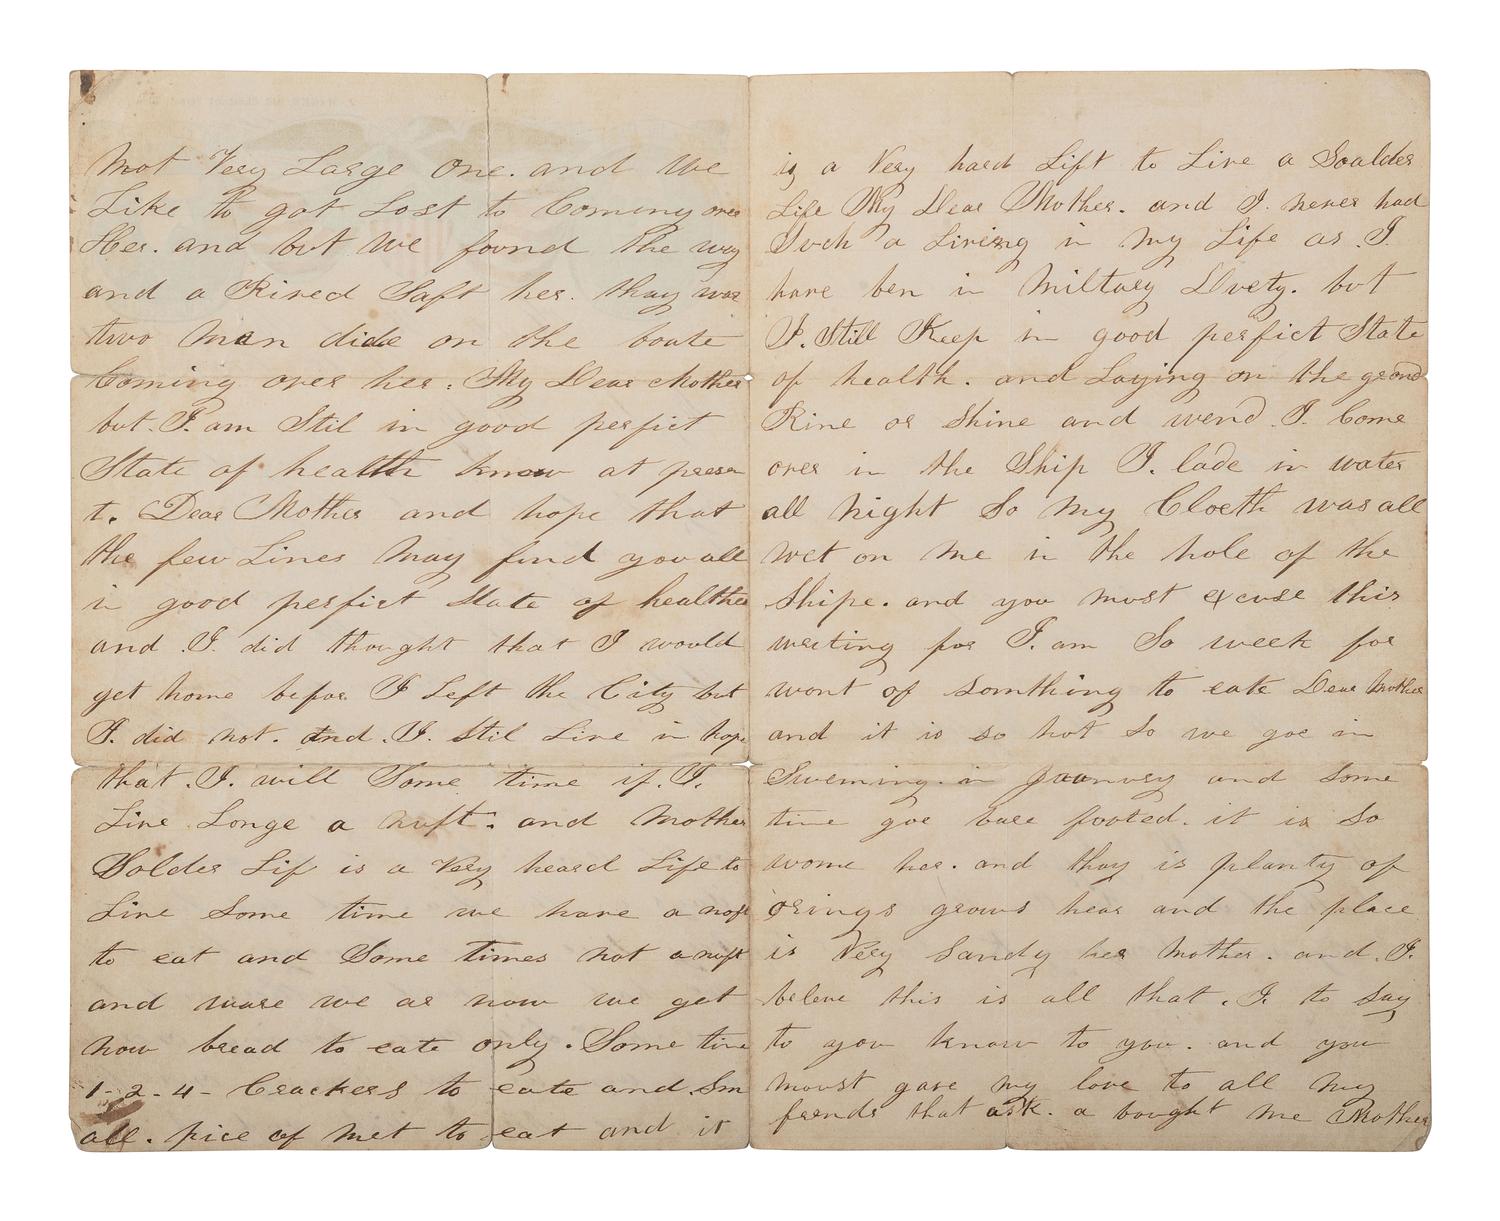 not Very Large One. and We
Like to got Lost to Coming over
Her. and but We found the way
and a Rived Saft her. thay was
two Man dide on the boate
Coming over her. My Dear Mother
but. I. am Stil in good perfict
State of health know at presen
t. Dear Mother and hope that
the few Lines May find you all
in good perfict State of healthe
and .I. did thought that I would
get home befor I Left the City but
I. did not. and .I. Stil Live in hope
that .I. will Some time if .I.
Live Longe a nuft. and Mother
Solder Lif is a Very heard Life to
Live Some time we have a nuft
to eat and Some times not a nuft
and ware we ar now we get
now bread to eate only. Some time
1-2-4- Crackers to eate and Sm
all. pice of Met to eat and it
is a Very hard Lift to Live a Soalder
Life My Dear Mother. and I. never had
Such a Living in My Life as .I.
have ben in Miltary Duety. but
I. Still Keep in good perfict State
of health. and Laying on the ground
Rine or Shine and wend .I. Come
over in the Ship I. lade in water
all night So My Cloeth was all
wet on me in the hole of the
Shipe. and you must excuse this
writing for I. am So week for
wont of somthing to eate Dear Mother
and it is so hot So we goe in
Sweming in January and some
time goe bare footed. it is So
wome her. and thay is planty of
oringes grows hear and the place
is Very Sandy her Mother. and .I.
beleve this is all that .I. to Say
to you know to you. and you
moust gave my love to all my
frends that ask. a bought me Mother